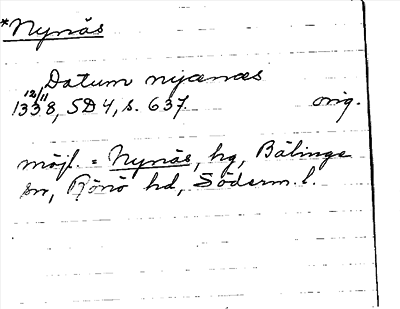 *Nynäs
Datum nyænæs
12/11
1338, SD 4, s. 637. orig.
möjl. = Nynäs, hg, Bälinge
sn, Rönö hd, Söderm. l.